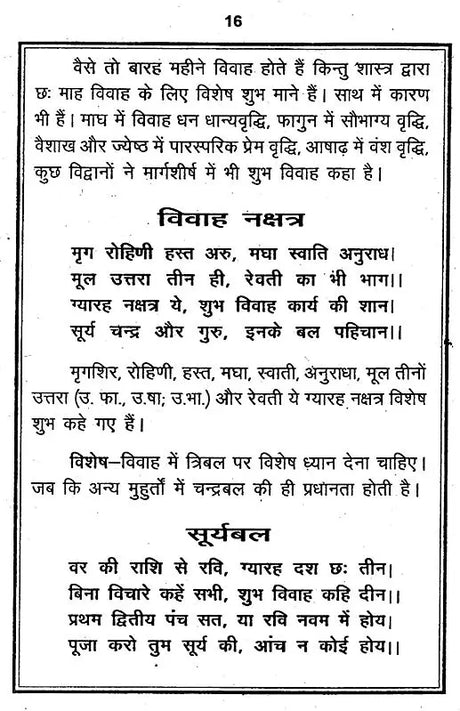 16
वैसे तो बारह महीने विवाह होते हैं किन्तु शास्त्र द्वारा
छः माह विवाह के लिए विशेष शुभ माने हैं। साथ में कारण
भी हैं। माघ में विवाह धन धान्यवृद्धि, फागुन में सौभाग्य वृद्धि,
वैशाख और ज्येष्ठ में पारस्परिक प्रेम वृद्धि, आषाढ़ में वंश वृद्धि,
कुछ विद्वानों ने मार्गशीर्ष में भी शुभ विवाह कहा है।
विवाह नक्षत्र
मृग रोहिणी हस्त अरु, मघा स्वाति अनुराध।
मूल उत्तरा तीन ही, रेवती का भी भाग।।
ग्यारह नक्षत्र ये, शुभ विवाह कार्य की शान।
सूर्य चन्द्र और गुरु, इनके बल पहिचान।।
मृगशिर, रोहिणी, हस्त, मघा, स्वाती, अनुराधा, मूल तीनों
उत्तरा (उ. फा., उ.षा; उ.भा.) और रेवती ये ग्यारह नक्षत्र विशेष
शुभ कहे गए हैं।
विशेष–विवाह में त्रिबल पर विशेष ध्यान देना चाहिए।
जब कि अन्य मुहुर्तों में चन्द्रबल की ही प्रधानता होती है।
सूर्यबल
वर की राशि से रवि, ग्यारह दश छः तीन।
बिना विचारे कहें सभी, शुभ विवाह कहि दीन।।
प्रथम द्वितीय पंच सत, या रवि नवम में होय।
पूजा करो तुम सूर्य की, आंच न कोई होय।।